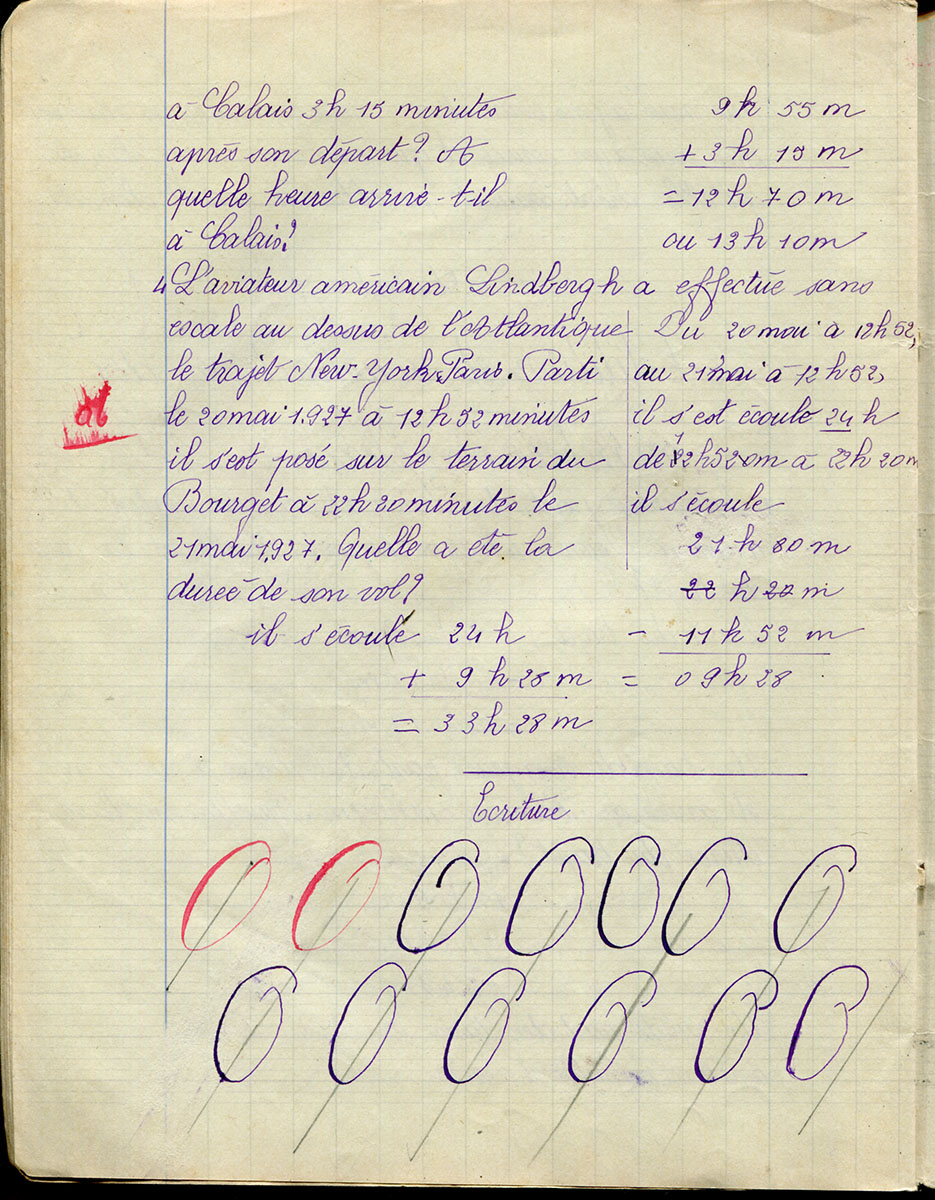 à Calais 3h 15 minutes
après son départ? A
quelle heure arrive-t-il
à Calais?
9h 55m
+3h 15m
=12h 70m
ou 13h 10m
4 L'aviateur américain Lindbergh a effectué sans
escale au dessus de l'Atlantique
le trajet New-York-Paris. Parti
le 20 mai 1.927 à 12h 52 minutes
il s'est posé sur le terrain du
Bourget à 22h 20 minutes le
21 mai 1.927. Quelle a été la
durée de son vol?
Du 20 mai à 12h 52,
au 21 mai à 12h 52,
il s'est écoulé 24h
de 12h 52 m à 22h 20m
il s'écoule
21h 80m
22h 20m
- 11h 52m
= 09h 28
il s'écoule 24h
+ 9h 28m
= 33h 28m
Ecriture
O O O O O O O
O O O O O O